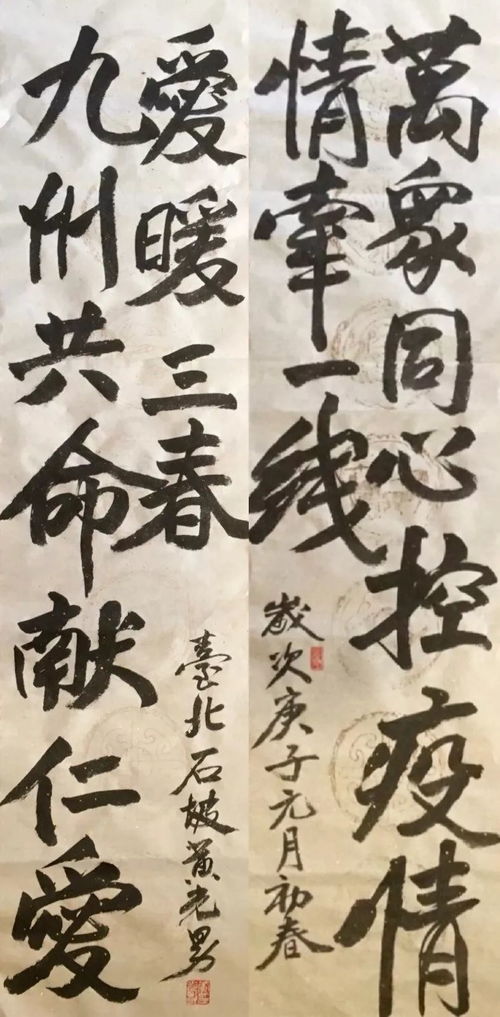 萬衆同心控疫情
情牽一线
歲次庚子元月初春
九州共命献仁愛
愛暖三春
臺北石坡黃光男